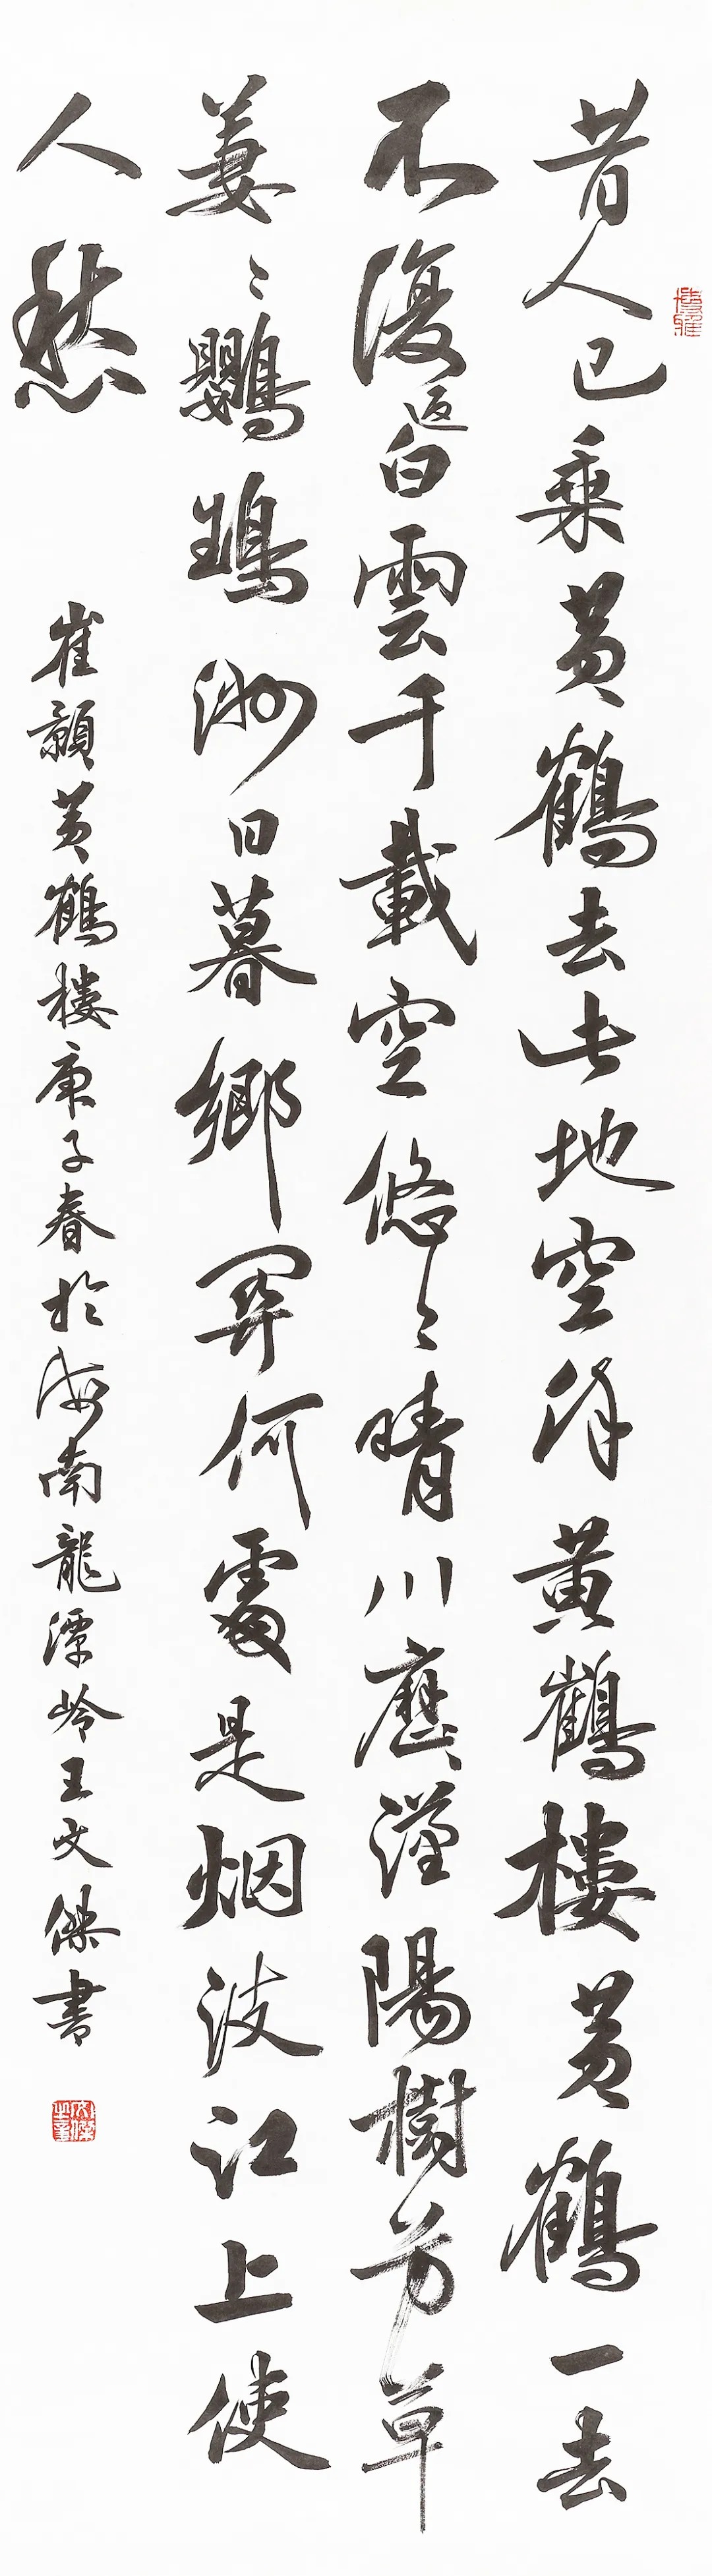 昔人已乘黄鶴去此地空餘黄鶴樓黄鶴一去
不復返白雲千載空悠〻晴川歷〻漢陽樹芳草
萋〻鸚鵡洲日暮鄉關何處是烟波江上使
人愁
崔顥黄鶴樓庚子春於海南龍潭岭王文傑書